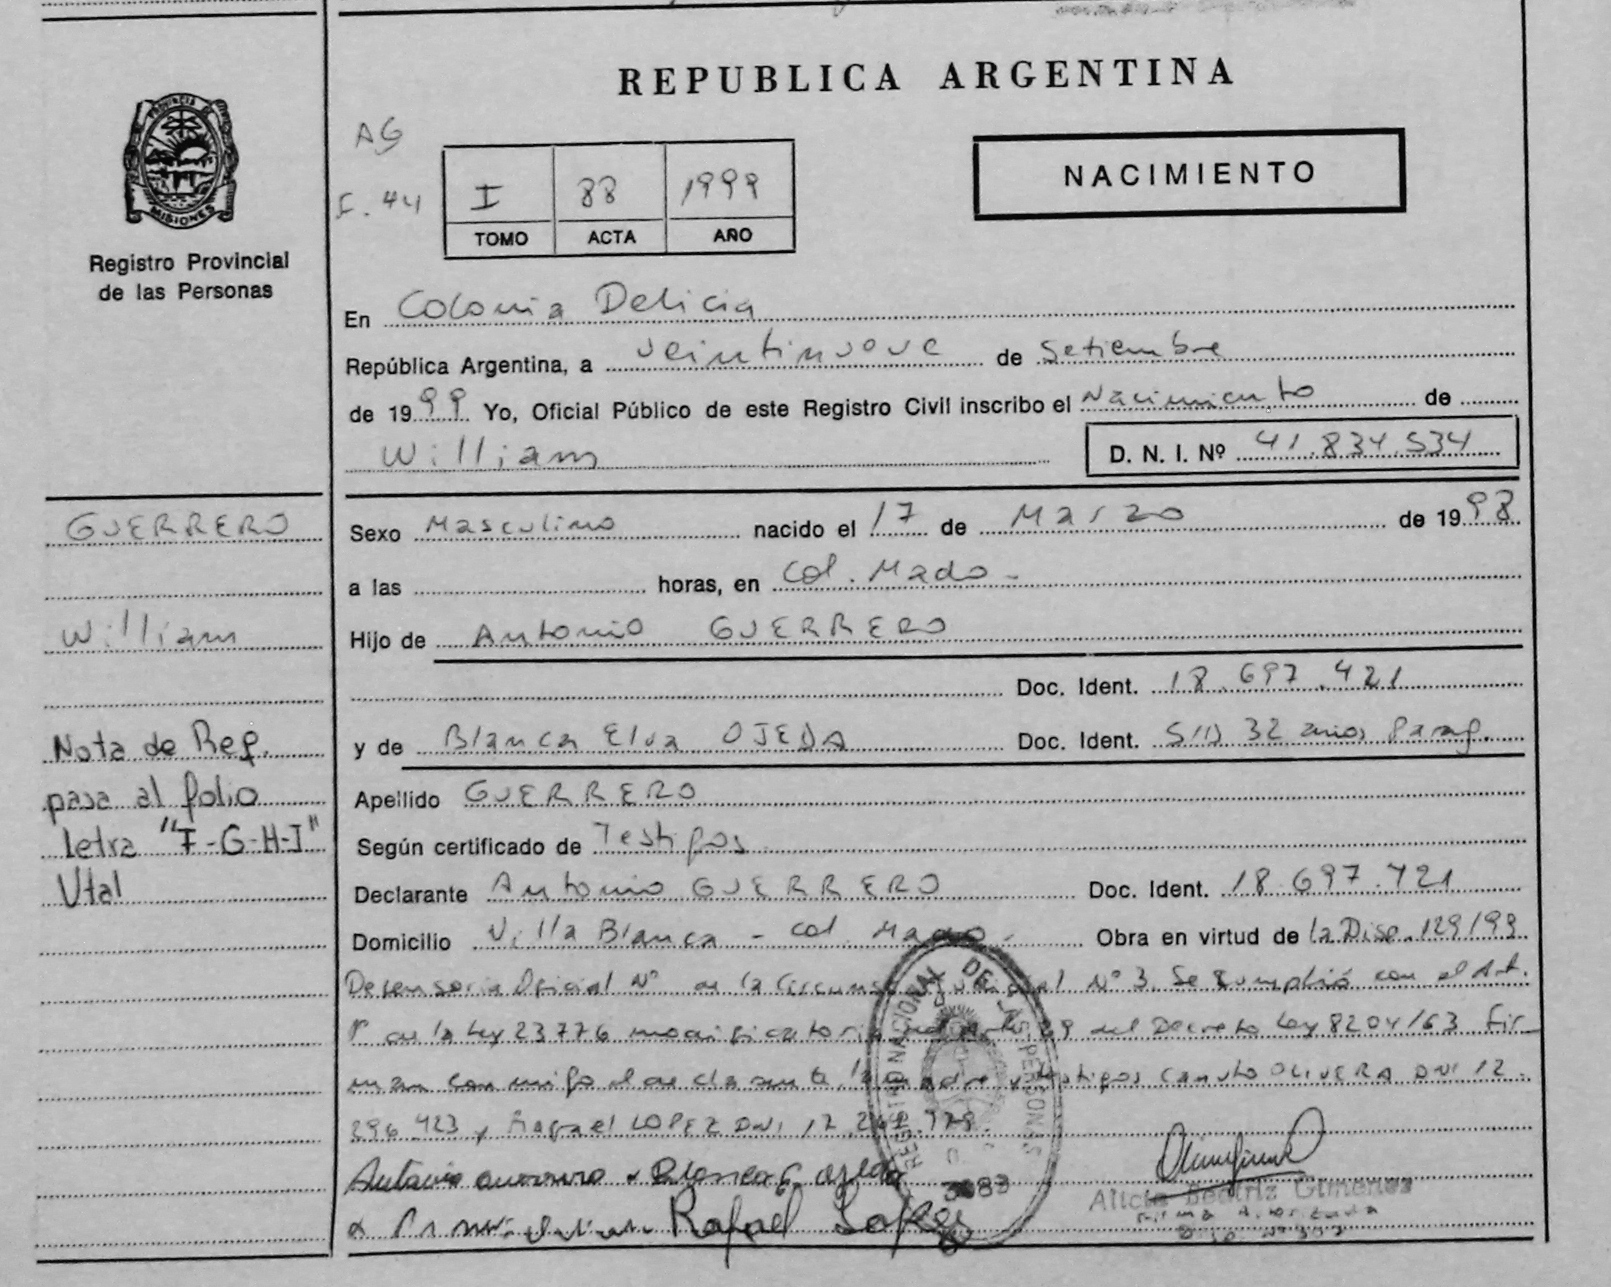 REPUBLICA ARGENTINA
PROVINCIA DE
MISIONES
Registro Provincial
de las Personas
AG
F. 44
I 88 1999
TOMO ACTA AÑO
NACIMIENTO
En Colonia Delicia
República Argentina, a veintinueve de Setiembre
de 1999 Yo, Oficial Público de este Registro Civil inscribo el Nacimiento de
William D. N. I. Nº 41.834.534
GUERRERO
William
Nota de Ref.
pasa al folio
letra "F-G-H-I"
Utal
Sexo Masculino nacido el 17 de Marzo de 1998
a las horas, en Col. Mado -
Hijo de Antonio GUERRERO
Doc. Ident. 18.697.421
y de Blanca Elva OJEDA Doc. Ident. S/D 32 años Parag.
Apellido GUERRERO
Según certificado de Testigos
Declarante Antonio GUERRERO Doc. Ident. 18.697.421
Domicilio Villa Blanca - Col. Mado - Obra en virtud de la Disp. 129/99
Defensoria Oficial Nº de la Circunsc. Judicial Nº 3. Se cumplió con el Art.
1º de la Ley 23776 modificatoria del Art. 29 del Decreto Ley 8204/63 Fir
man conmigo el declarante la madre y testigos Canuto OLIVERA DNI 12.
296.423 y Rafael LOPEZ DNI 17.
Antonio Guerrero
Rafael Lopez
REGISTRO NACIONAL DE LAS PERSONAS
3083
Alicia Beatriz Gimenez
Firma Autorizada